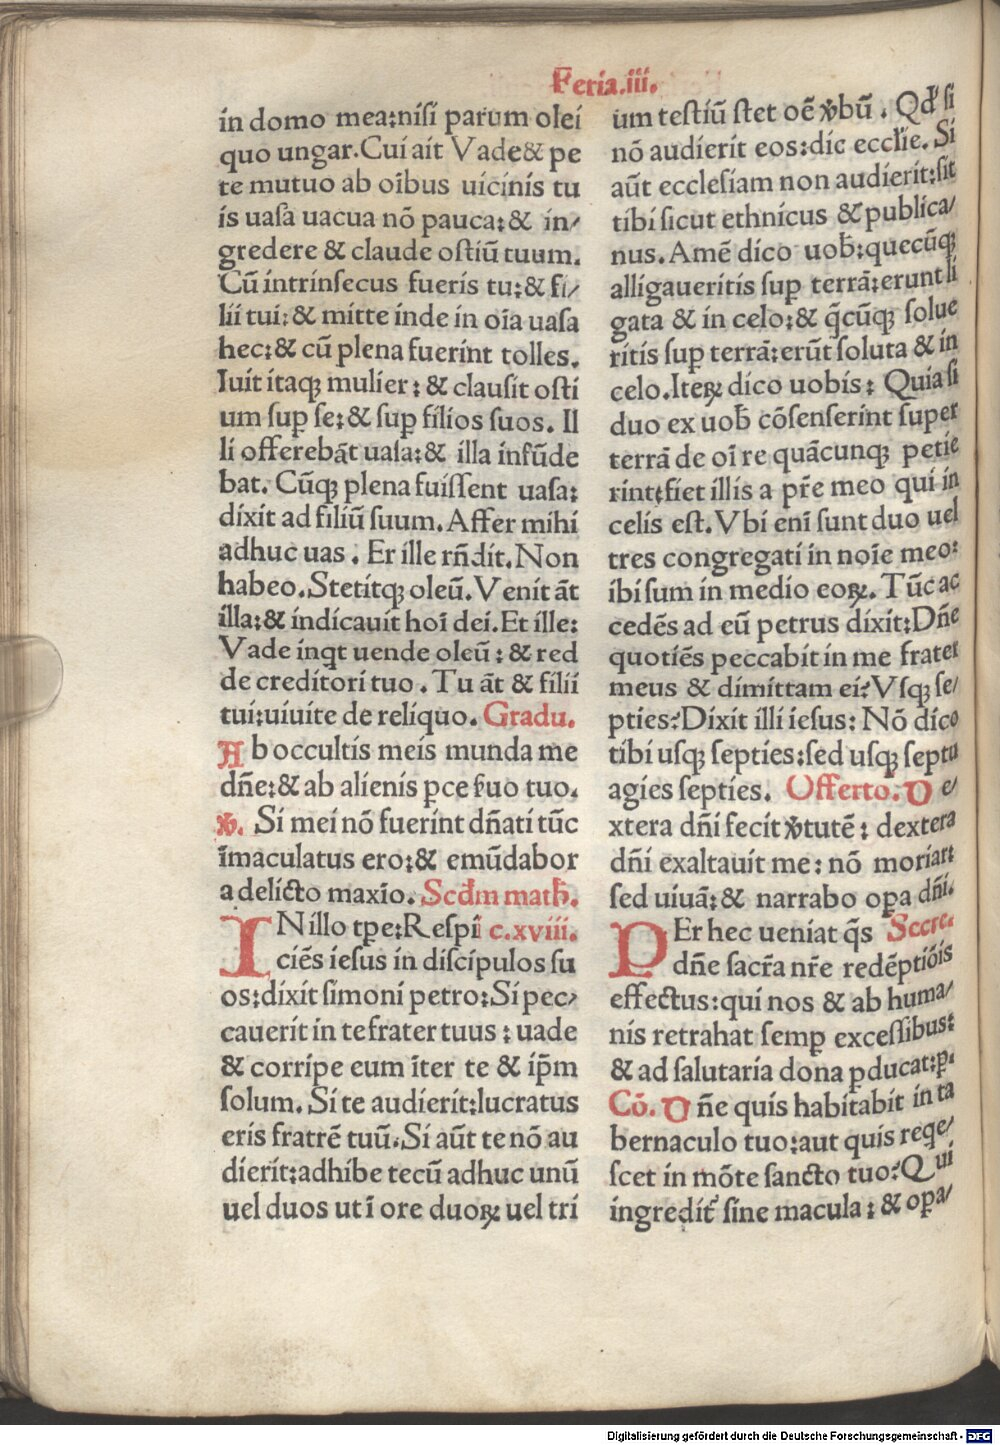 Feria.iii.
in domo mea:nisi parum olei
quo ungar.Cui ait Vade& pe
te mutuo ab oībus uicinis tu
is uasa uacua nō pauca:& in/
gredere & claude ostiū tuum.
Cū intrinsecus fueris tu:& fi/
lii tui:& mitte inde in oīa uasa
hec:& cū plena fuerint tolles.
Iuit itaqꝫ mulier:& clausit osti
um suꝑ se:& suꝑ filios suos. Il
li offerebāt uasa:& illa infūde
bat. Cūqꝫ plena fuissent uasa:
dixit ad filiū suum.Affer mihi
adhuc uas . Er ille rn̄dit.Non
habeo.Stetitqꝫ oleū.Venit āt
illa:& indicauit hoī dei.Et ille:
Vade inqt uende oleū:& red
de creditori tuo . Tu āt & filii
tui:uiuite de reliquo. Gradu.
Ab occultis meis munda me
dn̄e:& ab alienis ꝑce ẜuo tuo.
℣. Si mei nō fuerint dn̄ati tūc
īmaculatus ero:& emūdabor
a delicto maxīo. Scd̄m math̄.
IN illo tꝑe:Respi c.xviii.
ciēs iesus in discipulos su
os:dixit simoni petro:Si pec/
cauerit in te frater tuus:uade
& corripe eum īter te & ip̄m
solum. Si te audierit:lucratus
eris fratrē tuū.Si aūt te nō au
dierit:adhibe tecū adhuc unū
uel duos ut ī ore duoꝝ uel tri
um testiū stet oē v̄bū . Qd̄ si
nō audierit eos:dic eccl̄ie.Si
aūt ecclesiam non audierit:sit
tibi sicut ethnicus & publica/
nus.Amē dico uob̄:quecūqꝫ
alligaueritis suꝑ terrā:erunt li
gata & in celo:& q̄cūqꝫ solue
ritis suꝑ terrā:erūt soluta & in
celo.Iteꝝ dico uobis: Quia si
duo ex uob̄ cōsenserint super
terrā de oī re quācunqꝫ petie
rint:fiet illis a pr̄e meo qui in
celis est.Vbi enī sunt duo uel
tres congregati in noīe meo:
ibi sum in medio eoꝝ. Tūc ac
cedēs ad eū petrus dixit:Dn̄e
quotiēs peccabit in me frater
meus & dimittam ei?Vsqꝫ se/
pties?Dixit illi iesus:Nō dico
tibi usqꝫ septies:sed usqꝫ septu
agies septies. Offerto. De/
xtera dn̄i fecit v̄tutē: dextera
dn̄i exaltauit me:nō moriar:
sed uiuā:& narrabo oꝑa dn̄i.
PEr hec ueniat q̄s Secre.
dn̄e sacr̄a nr̄e redēptiōis
effectus:qui nos & ab huma/
nis retrahat semꝑ excessibus:
& ad salutaria dona ꝓducat:ꝑ.
Cō. Dn̄e quis habitabit in ta
bernaculo tuo:aut quis reqe/
scet in mōte sancto tuo?Qui
ingredit᷑ sine macula:& oꝑa/
Digitalisierung gefördert durch die Deutsche Forschungsgemeinschaft - DFG